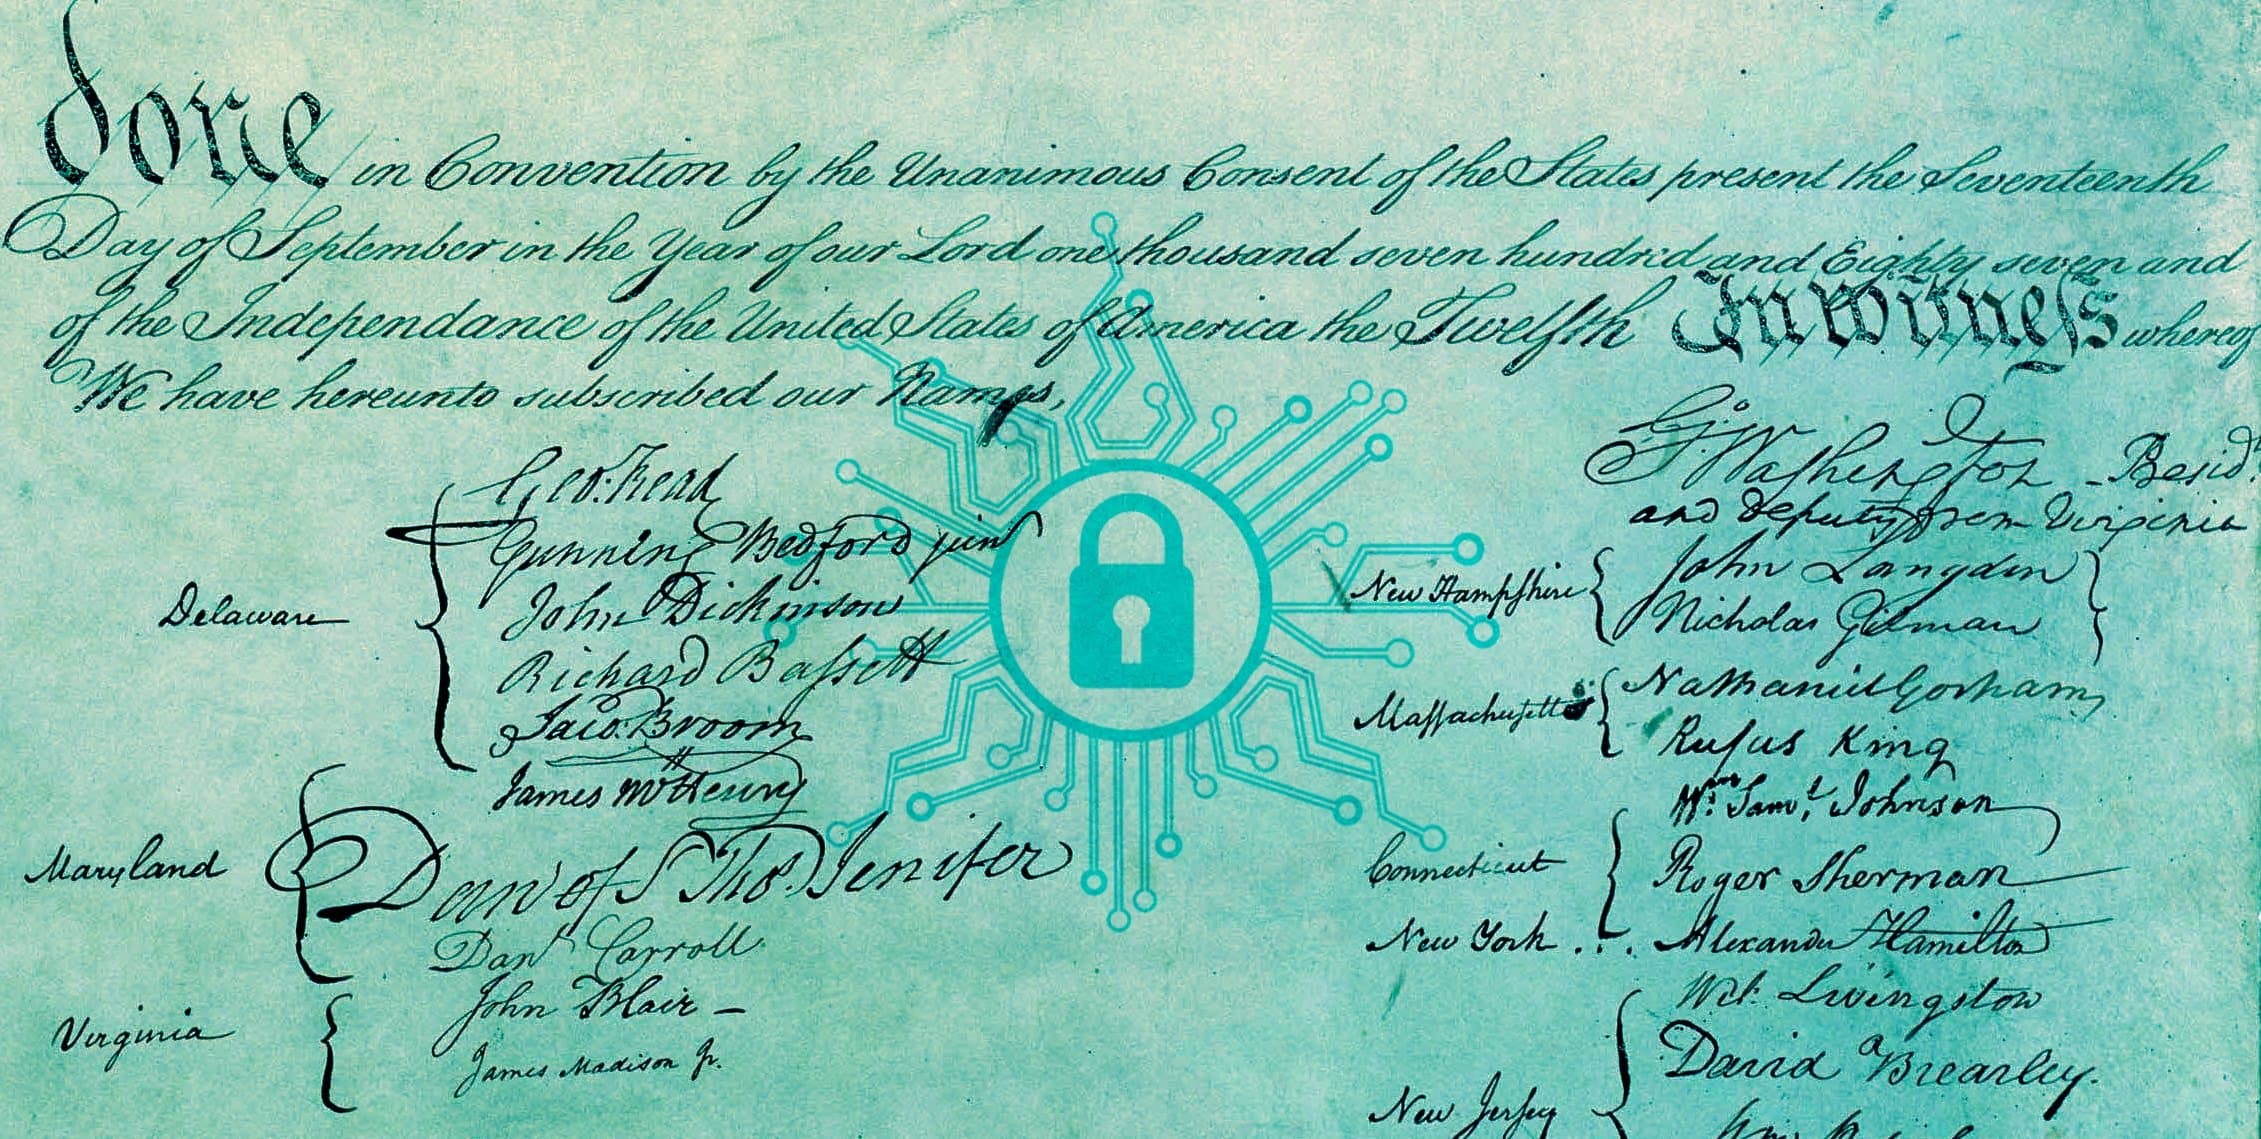 done in Convention by the Unanimous Consent of the States present the Seventeenth
Day of September in the Year of our Lord one thousand seven hundred and Eighty seven and
of the Independance of the United States of America the Twelfth In witneſs whereof
We have hereunto subscribed our Names,
Delaware
Geo: Read
Gunning Bedford jun
John Dickinson
Richard Baſsett
Jaco: Broom
Maryland
James McHenry
Dan of St Thos. Jenifer
Danl Carroll
Virginia
John Blair –
James Madison Jr.
Go. Washington – Presidt.
and deputy from Virginia
New Hampſhire
John Langdon
Nicholas Gilman
Maſſachuſetts
Nathaniel Gorham
Rufus King
Connecticut
Wm. Saml. Johnson
Roger Sherman
New York . . . Alexander Hamilton
New Jerſey
Wil: Livingston
David Brearley.